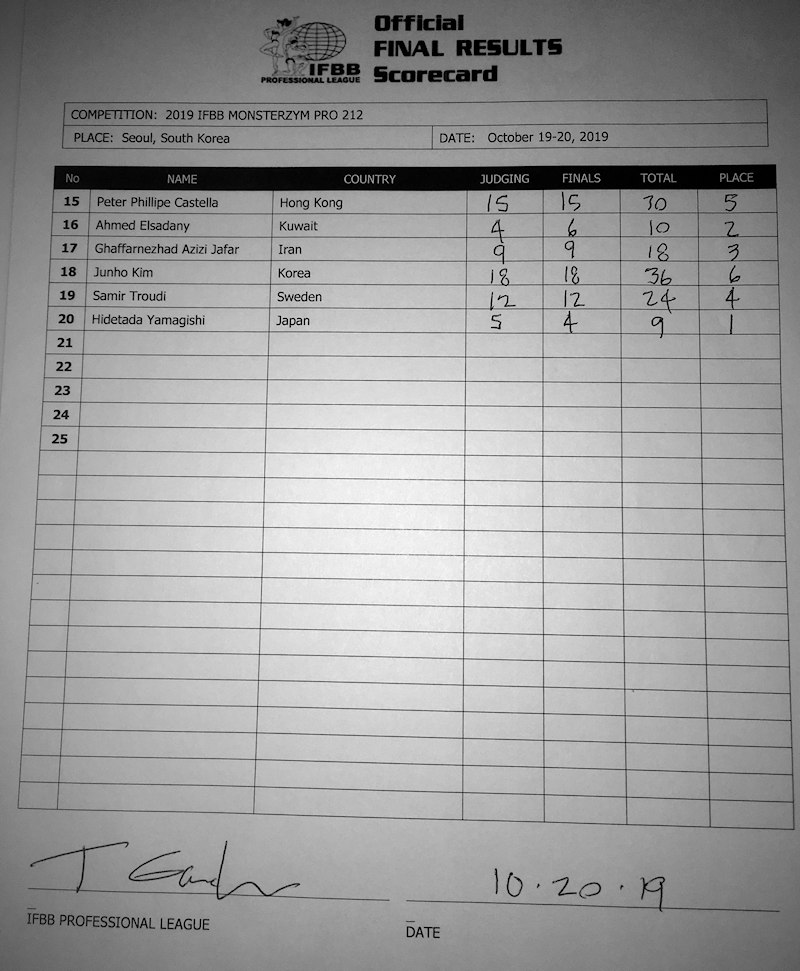 Official
FINAL RESULTS
Scorecard
IFBB
PROFESSIONAL LEAGUE
COMPETITION: 2019 IFBB MONSTERZYM PRO 212
PLACE: Seoul, South Korea DATE: October 19-20, 2019
No NAME COUNTRY JUDGING FINALS TOTAL PLACE
15 Peter Phillipe Castella Hong Kong 15 15 30 5
16 Ahmed Elsadany Kuwait 4 6 10 2
17 Ghaffarnezhad Azizi Jafar Iran 9 9 18 3
18 Junho Kim Korea 18 18 36 6
19 Samir Troudi Sweden 12 12 24 4
20 Hidetada Yamagishi Japan 5 4 9 1
21
22
23
24
25
10.20.19
IFBB PROFESSIONAL LEAGUE
DATE